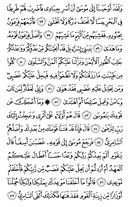 وَلَقَدْ أَوْحَيْنَا إِلَىٰ مُوسَىٰ أَنْ أَسْرِ بِعِبَادِي فَاضْرِبْ لَهُمْ طَرِيقًا
فِي الْبَحْرِ يَبَسًا لَّا تَخَافُ دَرَكًا وَلَا تَخْشَىٰ ٧٧ فَأَتْبَعَهُمْ فِرْعَوْنُ
بِجُنُودِهِ فَغَشِيَهُم مِّنَ الْيَمِّ مَا غَشِيَهُمْ ٧٨ وَأَضَلَّ فِرْعَوْنُ قَوْمَهُ
وَمَا هَدَىٰ ٧٩ يَٰبَنِي إِسْرَٰٓءِيلَ قَدْ أَنجَيْنَٰكُم مِّنْ عَدُوِّكُمْ
وَوَٰعَدْنَٰكُمْ جَانِبَ الطُّورِ الْأَيْمَنَ وَنَزَّلْنَا عَلَيْكُمُ الْمَنَّ وَالسَّلْوَىٰ ٨٠
كُلُوا مِن طَيِّبَٰتِ مَا رَزَقْنَٰكُمْ وَلَا تَطْغَوْا فِيهِ فَيَحِلَّ عَلَيْكُمْ غَضَبِي
وَمَن يَحْلِلْ عَلَيْهِ غَضَبِي فَقَدْ هَوَىٰ ٨١ وَإِنِّي لَغَفَّارٌ لِّمَن تَابَ
وَءَامَنَ وَعَمِلَ صَٰلِحًا ثُمَّ اهْتَدَىٰ ٨٢ ۞ وَمَا أَعْجَلَكَ عَن
قَوْمِكَ يَٰمُوسَىٰ ٨٣ قَالَ هُمْ أُولَاءِ عَلَىٰ أَثَرِي وَعَجِلْتُ إِلَيْكَ
رَبِّ لِتَرْضَىٰ ٨٤ قَالَ فَإِنَّا قَدْ فَتَنَّا قَوْمَكَ مِن بَعْدِكَ وَأَضَلَّهُمُ
السَّامِرِيُّ ٨٥ فَرَجَعَ مُوسَىٰ إِلَىٰ قَوْمِهِ غَضْبَٰنَ أَسِفًا
قَالَ يَٰقَوْمِ أَلَمْ يَعِدْكُمْ رَبُّكُمْ وَعْدًا حَسَنًا أَفَطَالَ عَلَيْكُمُ
الْعَهْدُ أَمْ أَرَدتُّمْ أَن يَحِلَّ عَلَيْكُمْ غَضَبٌ مِّن رَّبِّكُمْ فَأَخْلَفْتُم
مَّوْعِدِي ٨٦ قَالُوا مَا أَخْلَفْنَا مَوْعِدَكَ بِمَلْكِنَا وَلَٰكِنَّا حُمِّلْنَا
أَوْزَارًا مِّن زِينَةِ الْقَوْمِ فَقَذَفْنَٰهَا فَكَذَٰلِكَ أَلْقَى السَّامِرِيُّ ٨٧